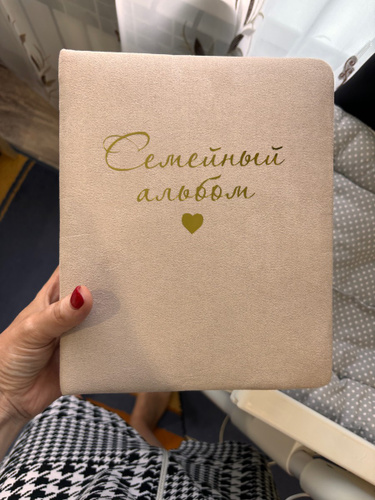 Семейный
альбом